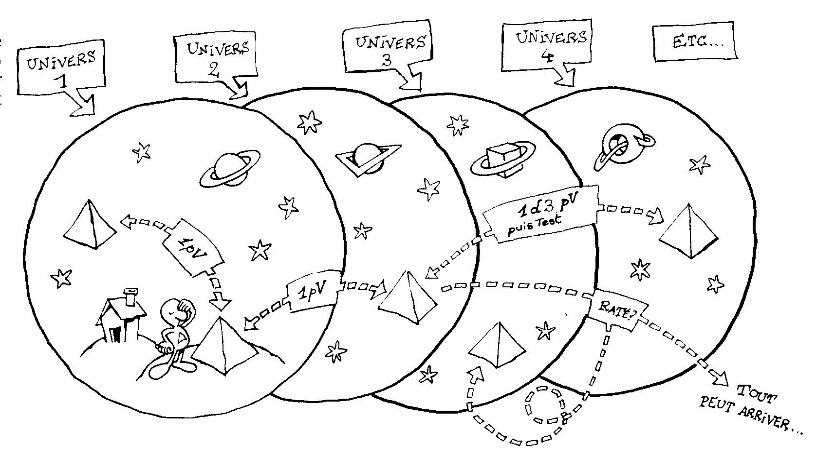 UNIVERS
1
UNIVERS
2
UNIVERS
3
UNIVERS
4
ETC...
1pV
1pV
1d3 pV
puis Test
RATÉ?
TOUT
PEUT ARRIVER...